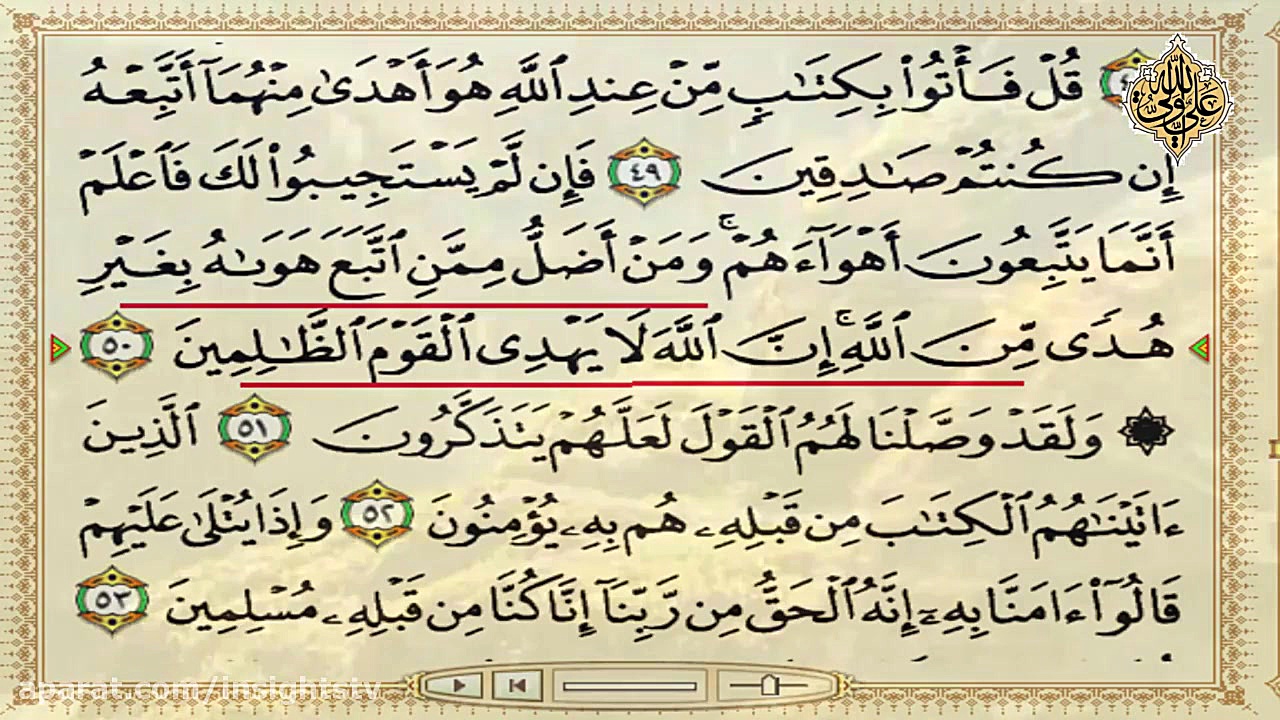 قُلْ فَأْتُوا۟ بِكِتَـٰبٍ مِّنْ عِندِ ٱللَّهِ هُوَ أَهْدَىٰ مِنْهُمَآ أَتَّبِعْهُ
إِن كُنتُمْ صَـٰدِقِينَ ٤٩ فَإِن لَّمْ يَسْتَجِيبُوا۟ لَكَ فَٱعْلَمْ
أَنَّمَا يَتَّبِعُونَ أَهْوَآءَهُمْ ۚ وَمَنْ أَضَلُّ مِمَّنِ ٱتَّبَعَ هَوَىٰهُ بِغَيْرِ
هُدًى مِّنَ ٱللَّهِ ۚ إِنَّ ٱللَّهَ لَا يَهْدِى ٱلْقَوْمَ ٱلظَّـٰلِمِينَ ٥٠
۞ وَلَقَدْ وَصَّلْنَا لَهُمُ ٱلْقَوْلَ لَعَلَّهُمْ يَتَذَكَّرُونَ ٥١ ٱلَّذِينَ
ءَاتَيْنَـٰهُمُ ٱلْكِتَـٰبَ مِن قَبْلِهِۦ هُم بِهِۦ يُؤْمِنُونَ ٥٢ وَإِذَا يُتْلَىٰ عَلَيْهِمْ
قَالُوٓا۟ ءَامَنَّا بِهِۦٓ إِنَّهُ ٱلْحَقُّ مِن رَّبِّنَآ إِنَّا كُنَّا مِن قَبْلِهِۦ مُسْلِمِينَ ٥٣
aparat.com/insightstv